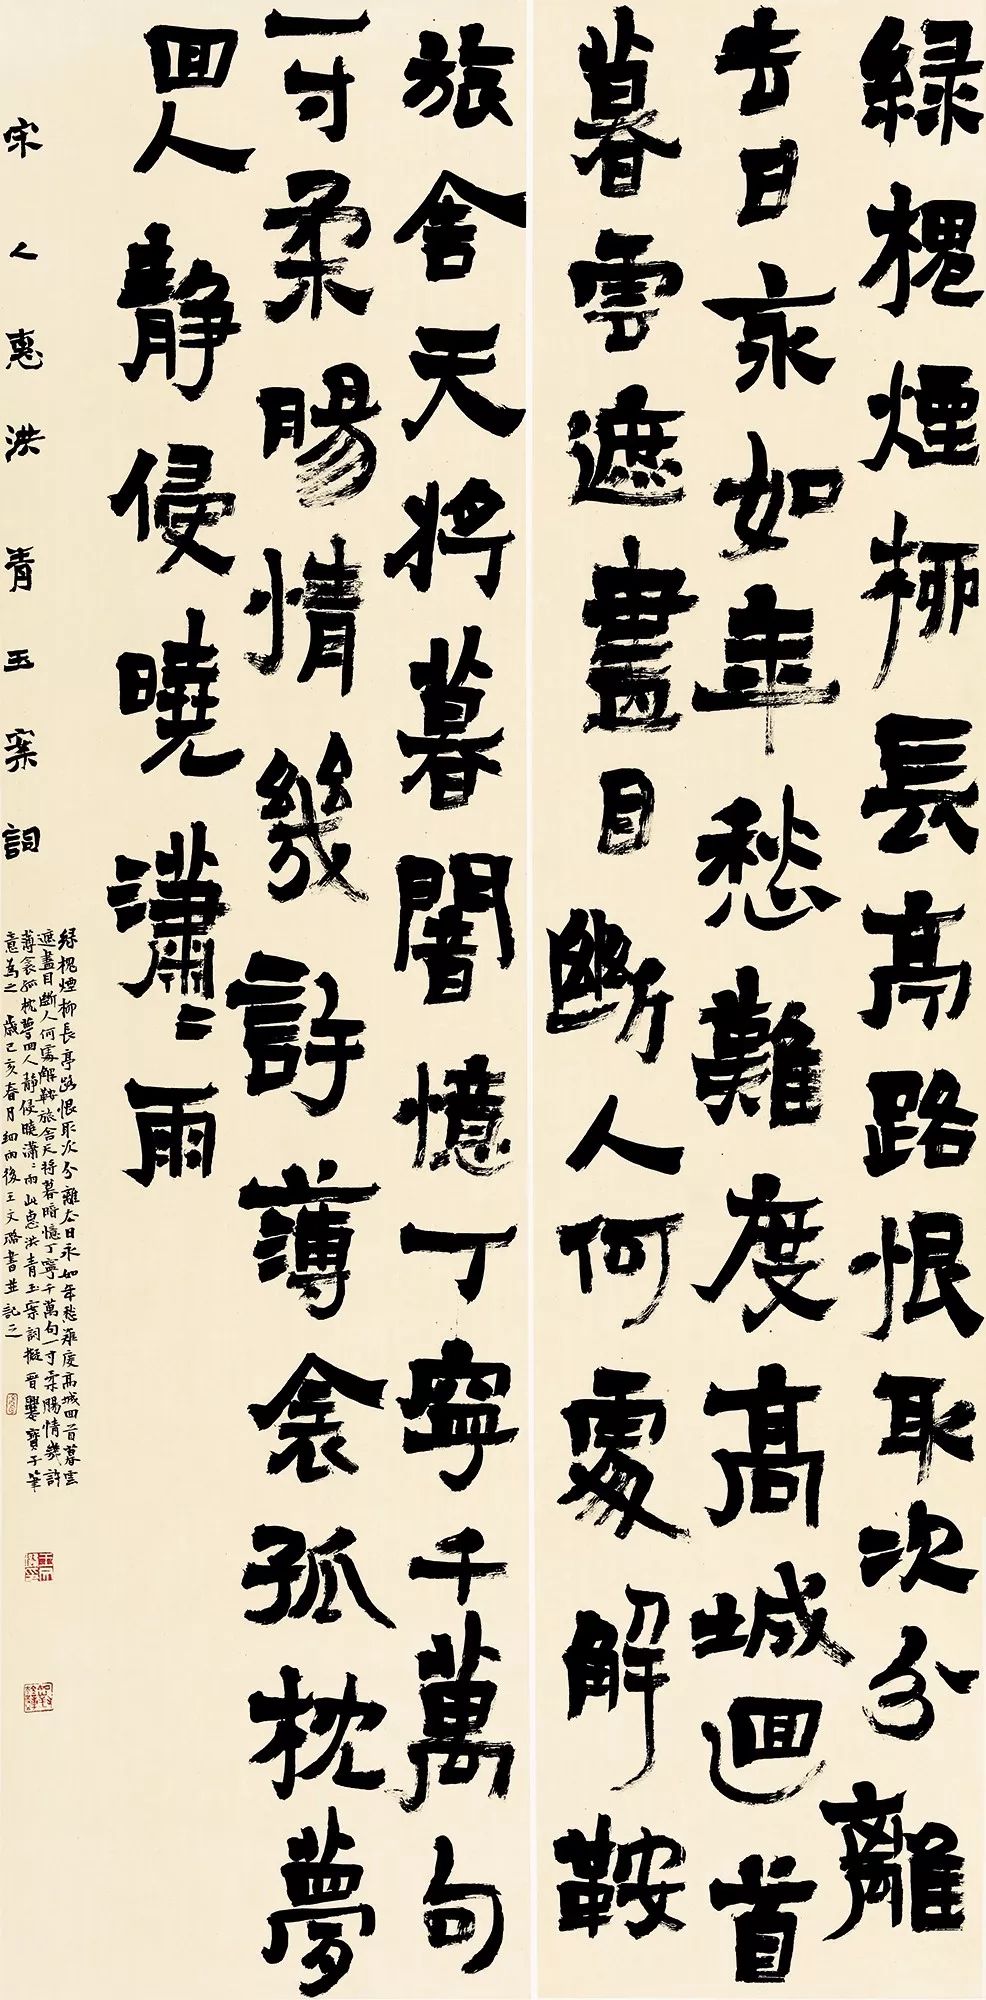 綠槐煙柳長亭路恨取次分離
去日永如年愁難度高城迴首
暮雲遮盡目斷人何處解鞍
旅舍天將暮闇憶丁寧千萬句
一寸柔腸情幾許薄衾孤枕夢
回人靜侵曉瀟〻雨
宋人惠洪青玉案詞
綠槐煙柳長亭路恨取次分離去日永如年愁難度高城回首暮雲
遮盡目斷人何處解鞍旅舍天將暮暗憶丁寧千萬句一寸柔腸情幾許
薄衾孤枕夢回人靜侵曉瀟〻雨此惠洪青玉案詞擬晉爨寶子筆
意為之 歲己亥春月細雨後王文璐書並記之